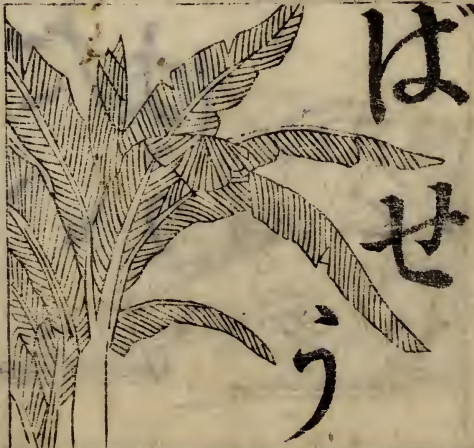 ばせう